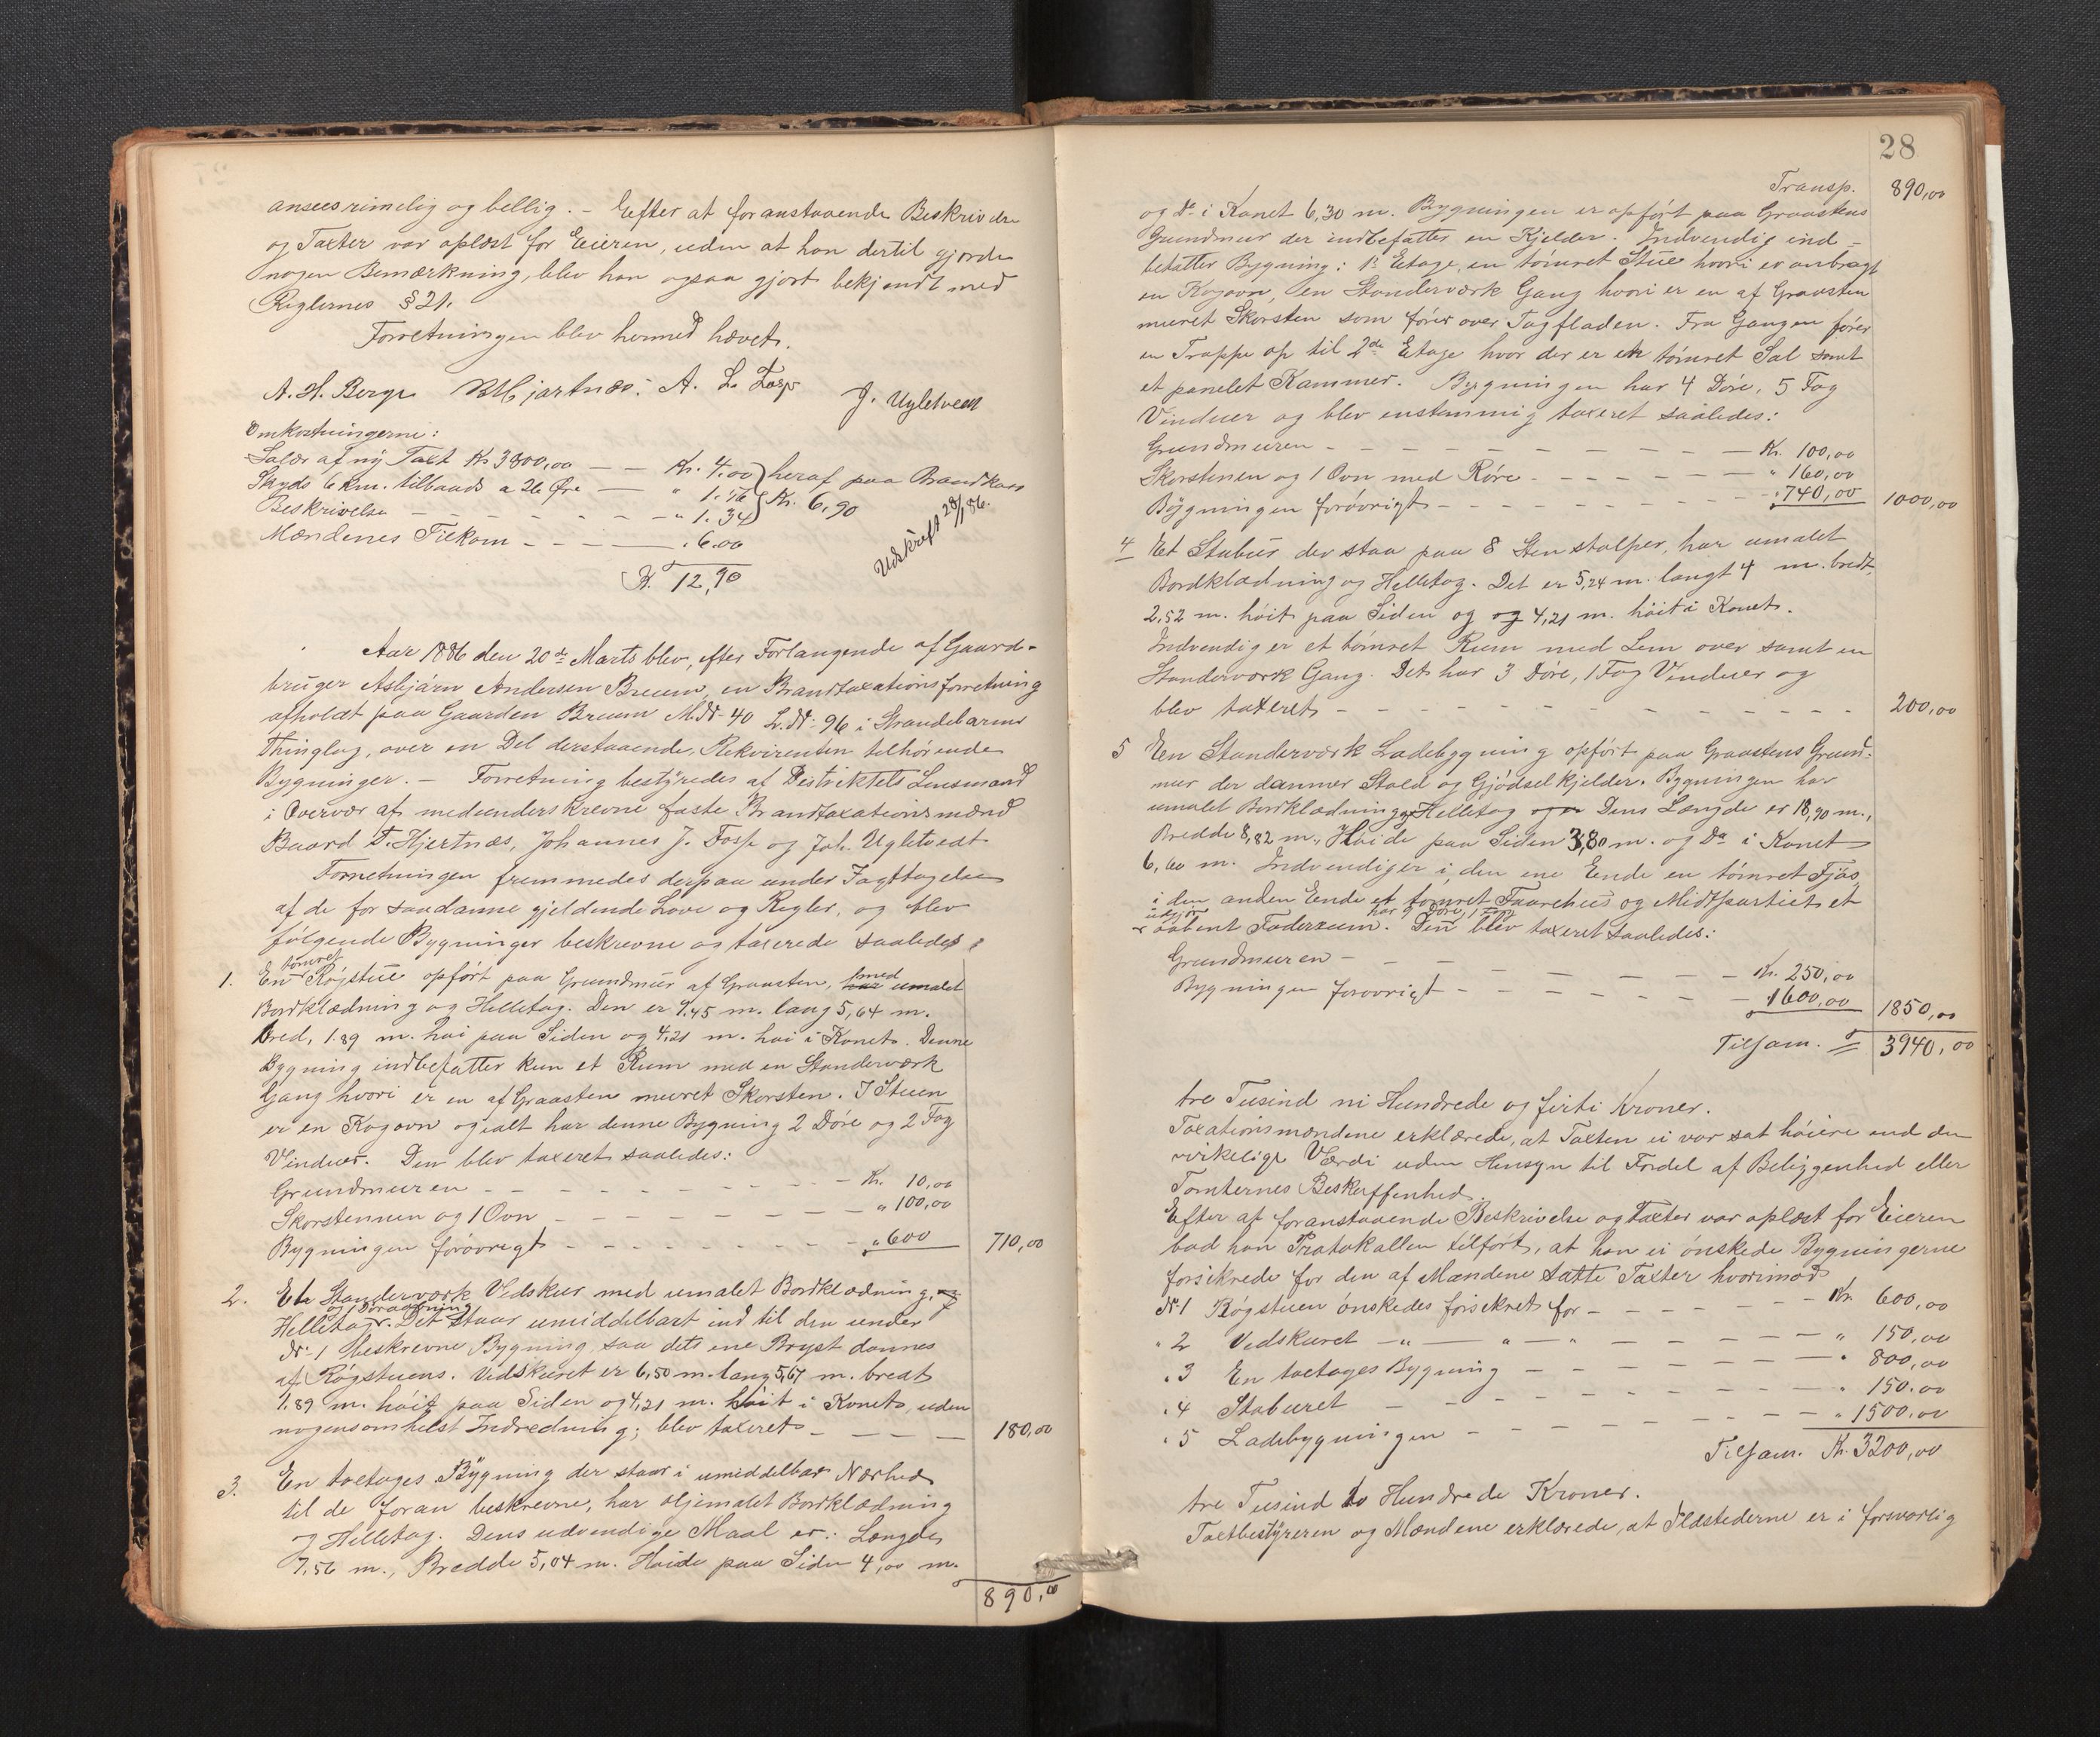 ansees rimelig og billig. – Efter at foranstaaende Beskrivelse
og Taxter var oplæst for Eieren, uden at han dertil gjorde
nogen Bemærkning, blev han ogsaa gjort bekjendt med
Reglernes § 21.
Forretningen blev hermed hævet.
A. H. Berge B Hjartnæs. A. L. Fosse J. Ugletveet
Omkostningerne:
Salær af ny Taxt Kr 3800,00 — — Kr. 4.00 } heraf paa Brandkass
Skyds 6 km. tilbaads a 26 Øre — " 1.56 } Kr. 6,90
Beskrivelse - - - - - - " 1.34
Mændenes Tilkom - - — " 6.00
Kr. 12,90
Udskrift 28/1 86.
Aar 1886 den 20de Marts blev, efter Forlangende af Gaard-
bruger Asbjørn Andersen Bruum, en Brandtaxationsforretning
afholdt paa Gaarden Bruum M.No 40 L.No 96 i Strandebarms
Thinglag, over en Del derstaaende, Rekvirenten tilhørende
Bygninger. – Forretning bestyredes af Distriktets Lensmand
i Overvær af medunderskrevne faste Brandtaxationsmænd
Baard T. Hjertnæs, Johannes J. Fosse og Joh. Ugletvedt
Forretningen fremmedes derpaa under Iagttagelse
af de for saadanne gjeldende Love og Regler, og blev
følgende Bygninger beskrevne og taxerede saaledes:
tømret
1. En Røgstue opført paa Grundmur af Graasten, har med umalet
Bordklædning og Helletag. Den er 9.45 m. lang 5,64 m.
bred, 1.89 m. høi paa Siden og 4,21 m. høi i Rønet. Denne
Bygning indbefatter kun et Rum med en Standerværk
Gang hvori er en af Graasten muret Skorsten. I Stuen
er en Kogovn og ialt har denne Bygning 2 Døre og 2 Fag
Vinduer. Den blev taxeret saaledes:
Grundmuren - - - - - - - - Kr. 10,00
Skorstennen og 1 Ovn - - - - - - " 100,00
Bygningen forøvrigt - - - - - - - " 600 710,00
2. Et Standerværk Vedskur med umalet Bordklædning, og
og 1 Døraabning
Helletag. Det staar umiddelbart ind til den under
No 1 beskrevne Bygning, saa dets ene Bryst dannes
af Røgstuens. Vedskuret er 6,50 m. lang 5,67 m. bredt
1.89 m. høit paa Siden og 4,21 m. høit i Rønet, uden
nogensomhelst Indredning; blev taxeret - — — — 180,00
3. En toetages Bygning der staar i umiddelbar Nærhed
til de foran beskrevne, har oljemalet Bordklædning
og Helletag. Dens udvendige Maal er: Længde
7,56 m., Bredde 5,04 m. Høide paa Siden 4,00 m.
890,00
28
Transp. 890,00
og do i Rønet 6,30 m. Bygningen er opført paa Graastens
Grundmur der indbefatter en Kjelder. Indvendig ind-
befatter Bygning: 1ste Etage, en tømret Stue hvori er anbragt
en Kogovn, en Standerværk Gang hvori er en af Graasten
muret Skorsten som fører over Tagfladen. Fra Gangen fører
en Trappe op til 2den Etage hvor der er en tømret Sal samt
et panelet Kammer. Bygningen har 4 Døre, 5 Fag
Vinduer og blev enstemmig taxeret saaledes:
Grundmuren - - - - - - - - - — Kr. 100,00
Skorstenen og 1 Ovn med Røre - - - - - — " 160,00
Bygningen forøvrigt - - - - - - - - " 740,00 1000,00
4 Et Stabur der staa paa 8 Sten stolper, har umalet
Bordklædning og Helletag. Det er 5,24 m. langt 4 m. bredt,
2,52 m. høit paa Siden og og 4,21 m. høit i Rønet.
Indvendig er et tømret Rum med Lem over samt en
Standerværk Gang. Det har 3 Døre, 1 Fag Vinduer og
blev taxeret - - - - - - - - - - - - 200,00
5 En Standerværk Ladebygning opført paa Graastens Grund-
mur der danner Stald og Gjødselkjelder. Bygningen har
umalet Bordklædning og Helletag og er Dens Længde er 18,90 m.,
Bredde 8,82 m., Høide paa Siden 3,80 m. og do i Rønet
6,60 m. Indvendig er i den ene Ende en tømret Fjøs
i den anden Ende et tømret Faarehus og Midtpartiet et
udgjør har 9 Døre, 1 Fag
aabent Foderrum. Den blev taxeret saaledes:
Grundmuren - - - - - - - - — Kr. 250,00
Bygningen forøvrigt - - - - - - — 1600,00 1850,00
Tilsam. 3940,00
tre Tusind ni Hundrede og firti Kroner.
Taxationsmændene erklærede, at Taxten ei var sat høiere end den
virkelige Værdi uden Hensyn til Fordel af Beliggenhed eller
Tomternes Beskaffenhed.
Efter at foranstaaende Beskrivelse og Taxter var oplæst for Eieren
bad han Protokollen tilført, at han ei ønskede Bygningerne
forsikrede for den af Mændene satte Taxter hvorimod
No 1 Røgstuen ønskedes forsikret for - - - - - - Kr. 600,00
" 2 Vedskuret — " — " — " - - - - - - — " 150,00
" 3 En toetages Bygning - - - - - - - — " 800,00
" 4 Staburet - - - - - - - - - — " 150.00
" 5 Ladebygningen - - - - - - - - — " 1500.00
Tilsam. Kr. 3200,00
tre Tusind to Hundrede Kroner.
Taxtbestyreren og Mændene erklærede, at Ildstederne er i forsvarlig